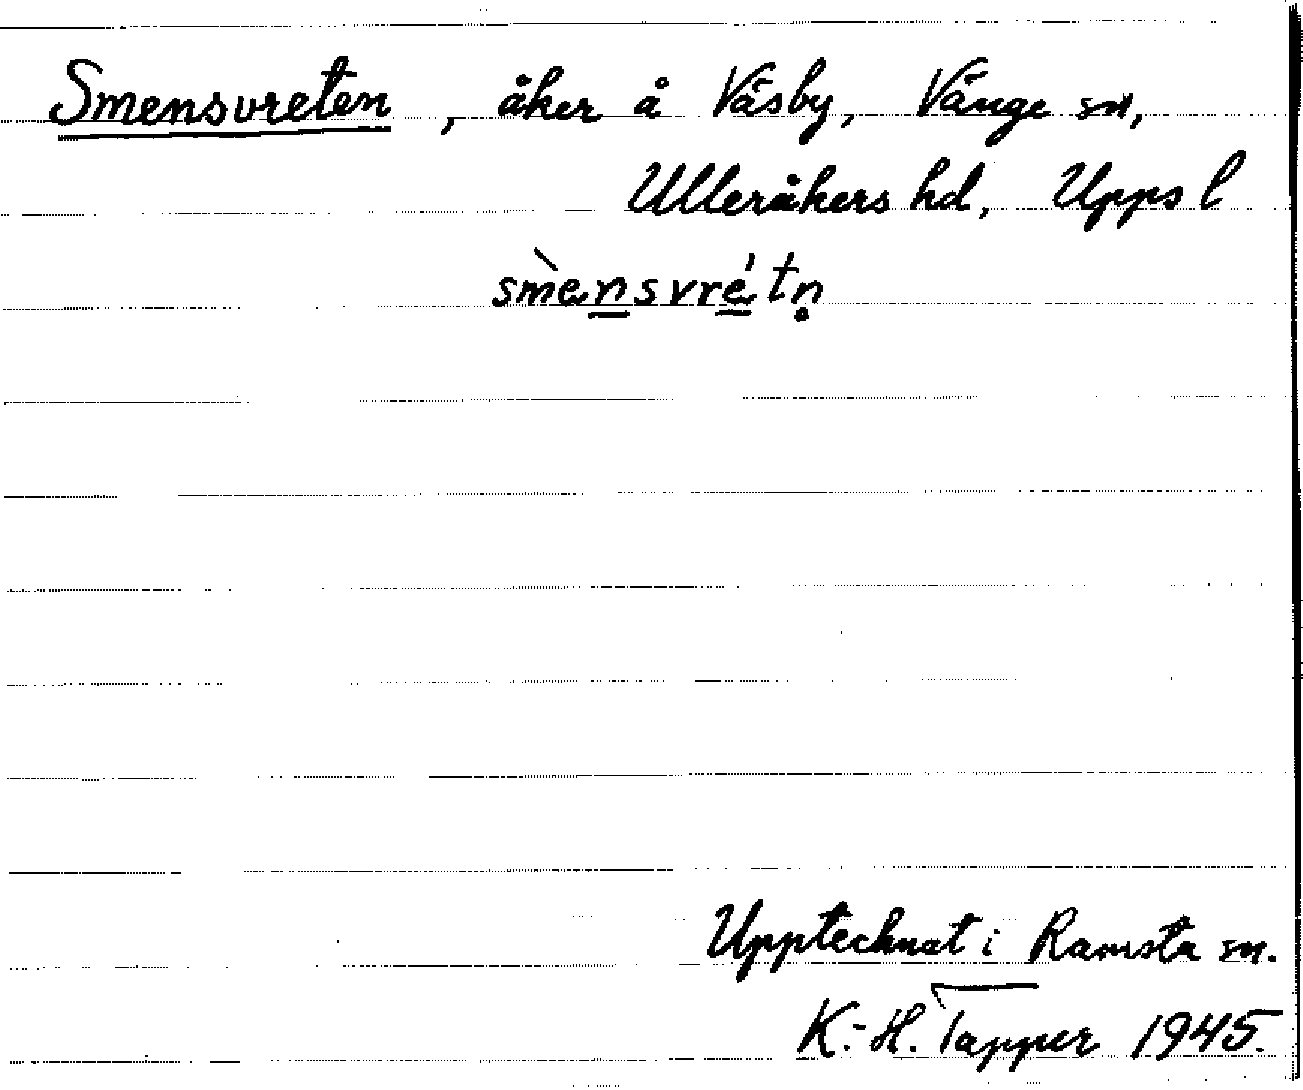 Smensvreten, åker å Väsby, Vänge sn,
Ulleråkers hd, Uppsl
smènsvrétn̥
Upptecknat i Ramsta sn.
K.-H. Tapper 1945.